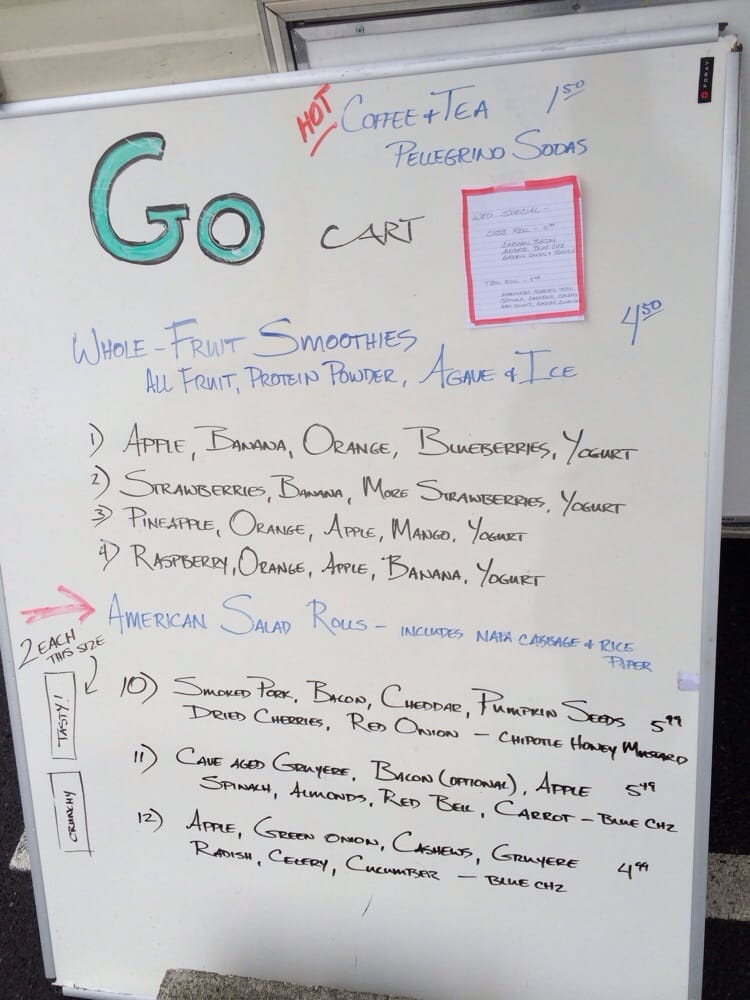 HOT COFFEE & TEA 1.50
PELLEGRINO SODAS
GO CART
FORAY
WED SPECIAL -
COBB ROLL - 5.99
CHICKEN, BACON
AVOCADO, BLUE CHZ
GREEN ONION &
ROLL - 5.99
WHOLE-FRUIT SMOOTHIES 4.50
ALL FRUIT, PROTEIN POWDER, AGAVE & ICE
1) APPLE, BANANA, ORANGE, BLUEBERRIES, YOGURT
2) STRAWBERRIES, BANANA, MORE STRAWBERRIES, YOGURT
3) PINEAPPLE, ORANGE, APPLE, MANGO, YOGURT
4) RASPBERRY, ORANGE, APPLE, BANANA, YOGURT
AMERICAN SALAD ROLLS - INCLUDES NAPA CABBAGE & RICE
PAPER
2 EACH
THIS SIZE
TASTY!
CRUNCHY
10) SMOKED PORK, BACON, CHEDDAR, PUMPKIN SEEDS 5.99
DRIED CHERRIES, RED ONION - CHIPOTLE HONEY MUSTARD
11) CAVE AGED GRUYERE, BACON (OPTIONAL), APPLE 5.49
SPINACH, ALMONDS, RED BELL, CARROT - BLUE CHZ
12) APPLE, GREEN ONION, CASHEWS, GRUYERE 4.99
RADISH, CELERY, CUCUMBER - BLUE CHZ